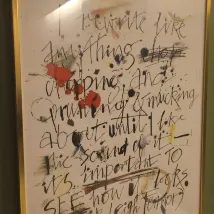 I rewrite like
anything
chopping and
pruning & mucking
about until I like
the sound of it
it's important to
SEE how it looks